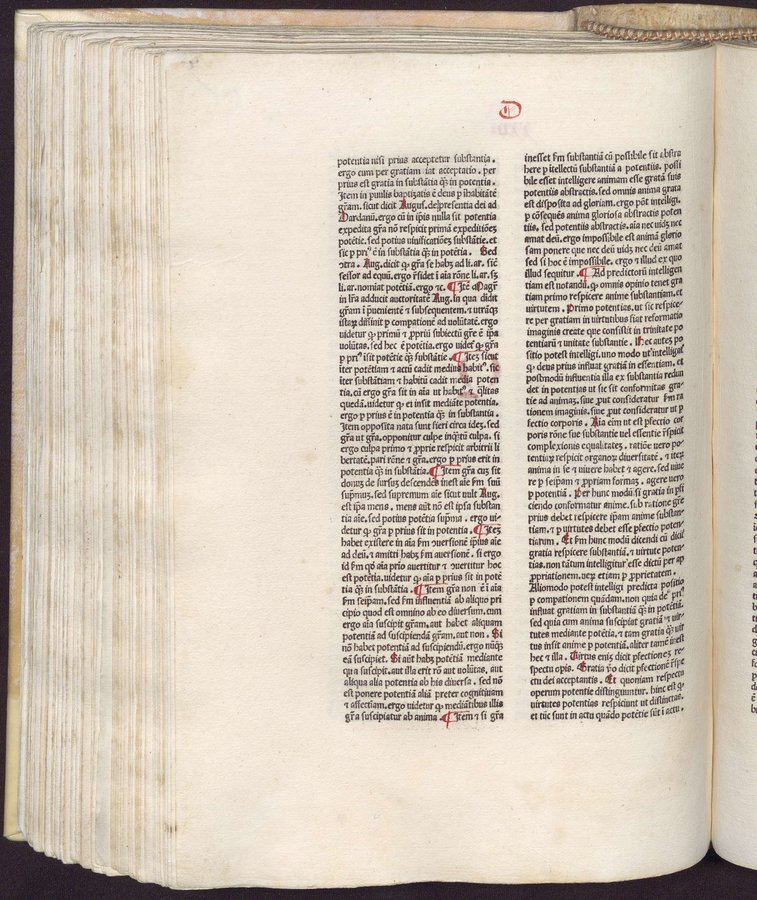 D
potentia nisi prius acceptetur substantia.
ergo cum per gratiam fiat acceptatio. per
prius est gratia in substãtia q̃ȝ in potentia.
Itẽm in puulis baptizatis ẽ deus p ĩhabitãtẽ
grãm. sicut dicit Augus. de presentia dei ad
Dardanũ. ergo cũ in ip̃is nulla sit potentia
expedita grã nõ respicit primã expeditiõeȝ
potẽtie. sed potius viuificatiõeȝ substãtie. et
sic p priꝰ ẽ in substãtia q̃ȝ in potẽtia. Sed
ꝯtra. Aug. dicit ꝙ grã se habȝ ad li. ar. sic̃
sessor ad equũ. ergo r̃sidet ĩ aĩa rõne li. ar. sȝ
li. ar. nomĩat potẽtiã. ergo ⁊c. ¶ Itẽ Magr̃
in lr̃a adducit auctoritatẽ Aug. in qua diuidit
grãm ĩ puenientẽ ⁊ subsequentem. ⁊ utrãqȝ
istaȝ diffinit p compationẽ ad uolũtatẽ. ergo
uidetur ꝙ primũ ⁊ ꝓpriũ subiectũ grẽ ẽ ip̃a
uolũtas. sed hec ẽ potẽtia. ergo uidet̃ ꝙ grã
p priꝰ ĩsit potẽtie q̃ȝ substãtie. ¶ Iteȝ sicut
iter potẽtiam ⁊ actũ cadit mediꝰ habitꝰ. sic
ĩter substãtiam ⁊ habitũ cadit media poten
tia. cũ ergo grã sit in aĩa ut habitꝰ ⁊ q̃litas
quedã. uidetur ꝙ ei insit mediãte potentia.
ergo p prius ẽ in potentia q̃ȝ in substantia.
Itẽm opposita nata sunt fieri circa ideȝ. sed
grã ut grã. opponitur culpe inq̃ȝtũ culpa. si
ergo culpa primo ⁊ ꝓprie respicit arbitrii li
bertatẽ. pari rõne ⁊ grã. ergo p prius erit in
potentia q̃ȝ in substãtia. ¶ Itẽm grã cuȝ sit
donuȝ de sursuȝ descendẽs inest aĩe fm suũ
supmuȝ. sed supremum aĩe sicut vult Aug.
est ip̃a mens. mens aũt nõ est ipsa substan
tia aĩe. sed potius potẽtia supma. ergo ui-
detur ꝙ grã p prius sit in potentia. ¶ Iteȝ
habet existere in aĩa fm ꝯuersionẽ ip̃ius aĩe
ad deũ. ⁊ amitti habȝ fm auersionẽ. si ergo
id fm qđ aĩa prĩo auertitur ⁊ ꝯuertitur hoc
est potẽtia. uidetur ꝙ aĩa p prius sit in potẽ
tia q̃ȝ in substãtia. ¶ Itẽm grã non ẽ ĩ aĩa
fm seip̃am. sed fm influentiã ab aliquo pri
cipio quod est omnino ab eo diuersum. cum
ergo aĩa suscipit grãm. aut habet aliquam
potentiã ad suscipiendã grãm. aut non. Si
nõ habet potentiã ad suscipiendũ. ergo nũq̃ȝ
eã suscipiet. Si aũt habȝ potẽtiã mediante
qua suscipit. aut illa erit rõ aut uolũtas. aut
aliqua alia potentia ab his diuersa. sed nõ
est ponere potentiã aliã preter cognitiuam
⁊ affectiuam. ergo uidetur ꝙ mediãtibus illis
grã suscipiatur ab anima. ¶ Itẽm ⁊ si grã
inesset fm substantiã cũ possibile sit abstra
here p ĩtellectũ substantiã a potentiis. possi
bile esset intelligere animam esse gratã suis
potentiis abstractis. sed omnis anima grata
est disposita ad gloriam. ergo põt intelligi.
p cõsequẽs anima gloriosa abstractis poten
tiis. sed potentiis abstractis. aĩa nec uidȝ nec
amat deũ. ergo impossibile est animã glorio
sam ponere que nec deũ uidȝ nec deũ amat
sed si hoc ẽ impossibile. ergo ⁊ illud ex quo
illud sequitur. ¶ Ad predictorũ intelligen
tiam est notandũ. ꝙ omnis opinio tenet gra
tiam primo respicere anime substantiam. et
virtutem. Primo potentias. ut sic respice-
re per gratiam in virtutibus fiat reformatio
imaginis create que consistit in trinitate po
tentiarũ ⁊ unitate substantie. Hec autẽȝ po
sitio potest intelligi. uno modo ut intelligat̃
ꝙ deus prius influat gratiã in essentiam. et
postmodũ influentia illa ex substantia redun
det in potentias ut sic sit conformitas gra-
tie ad animaȝ. siue put consideratur fm ra
tionem imaginis. siue put consideratur ut p
fectio corporis. Aĩa eim ut est pfectio cor
poris rõne sue substantie uel essentie r̃spicit
complexionis equalitateȝ. ratiõe vero po-
tentiaȝ respicit organoȝ diuersitatẽ. ⁊ uteȝ
anima in se ⁊ uiuere habet ⁊ agere. sed uiue
re p seip̃am ⁊ ꝓpriam formaȝ. agere vero
p potentiã. Per hunc modũ si gratia in psi
ciendo conformatur anime. sub ratione grẽ
prius debet respicere ip̃am anime substan-
tiam. ⁊ p virtutes debet esse pfectio poten-
tiarum. Et fm hunc modũ dicendi cũ dicit̃
gratia respicere substantiã. ⁊ virtute poten-
tias. non tãtum intelligitur esse dictũ per ap
ꝓpriationem. ueȝ etiam p ꝓprietatem.
Aliomodo potest intelligi predicta positio
p compationem quãdam. non quia deꝰ priꝰ
influat gratiam in substantiã q̃ȝ in potẽtiã.
sed quia cum anima suscipiat gratiã ⁊ uir-
tutes mediante potẽtia. ⁊ tam gratia q̃ȝ uir
tus insit anime p potentiã. aliter tamẽ inest
hec ⁊ illa. Virtus enim dicit pfectioneȝ re-
spectu opis. Gratia ṽo dicit pfectionẽ r̃spe
ctu dei acceptantis. Et quoniam respectu
operum potentie distinguuntur. hinc est ꝙ
uirtutes potentias respiciunt ut distinctas.
et tũc sunt in actu quãdo potẽtie sũt ĩ actu.